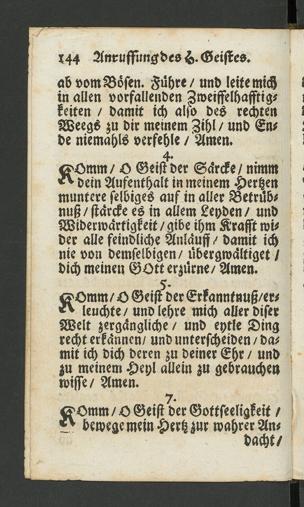 144 Anruffung des H. Geistes.
ab vom Bösen. Führe / und leite mich
in allen vorfallenden Zweiffelhafftig-
keiten / damit ich also des rechten
Weegs zu dir meinem Zihl / und En-
de niemahls verfehle / Amen.
4.
KOmm / O Geist der Särcke / nimm
dein Aufenthalt in meinem Hertzen
muntere selbiges auf in aller Betrüb-
nuß / stärcke es in allem Leyden / und
Widerwärtigkeit / gibe ihm Krafft wi-
der alle feindliche Anläuff / damit ich
nie von demselbigen / übergwältiget /
dich meinen GOtt erzürne / Amen.
5.
KOmm / O Geist der Erkanntnuß / er-
leuchte / und lehre mich aller diser
Welt zergängliche / und eytle Ding
recht erkännen / und unterscheiden / da-
mit ich dich deren zu deiner Ehr / und
zu meinem Heyl allein zu gebrauchen
wisse / Amen.
7.
KOmm / O Geist der Gottseeligkeit /
bewege mein Hertz zur wahrer An-
dacht /